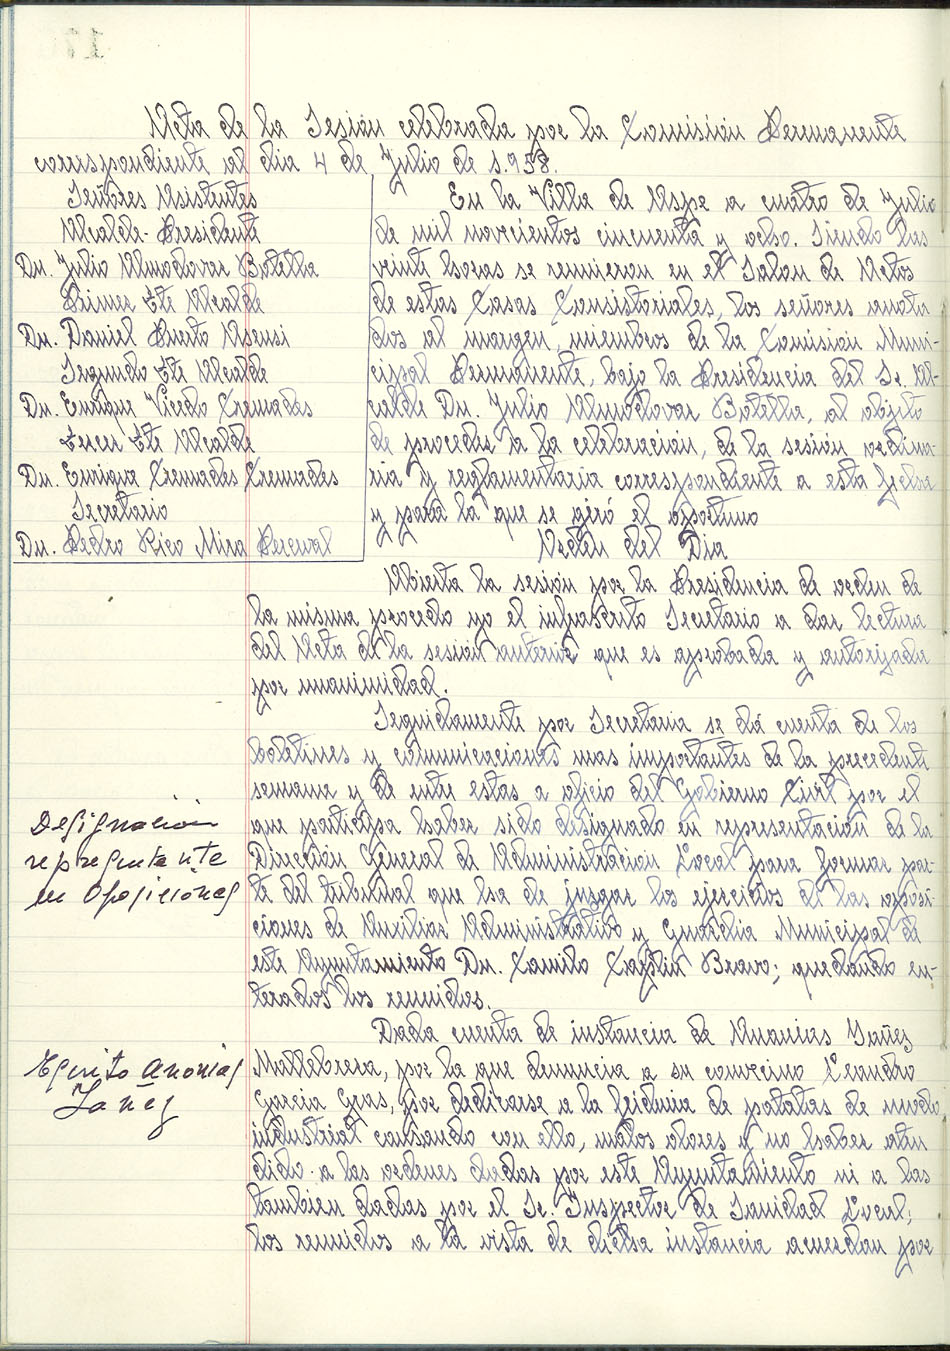 Acta de la Sesión celebrada por la Comisión Permanente
correspondiente al dia 4 de Julio de 1.958.
Señores Asistentes
Alcalde-Presidente
Dn. Julio Almodovar Botella
Primer Tte Alcalde
Dn. Daniel Prieto Asensi
Segundo Tte Alcalde
Dn. Enrique Vicedo Cremades
Tercer Tte Alcalde
Dn. Enrique Cremades Cremades
Secretario
Dn. Pedro Rico Mira Perceval
En la Villa de Aspe a cuatro de Julio
de mil novecientos cincuenta y ocho. Siendo las
veinte horas se reunieron en el Salon de Actos
de estas Casas Consistoriales, los señores anota
dos al margen, miembros de la Comisión Muni-
cipal Permanente, bajo la Presidencia del Sr. Al-
calde Dn. Julio Almodovar Botella, al objeto
de proceder a la celebración, de la sesión ordina-
ria y reglamentaria correspondiente a esta fecha
y para la que se giró el oportuno
Orden del Dia
Abierta la sesión por la Presidencia de orden de
la misma procedo yo el infrascrito Secretario a dar lectura
del Acta de la sesión anterior que es aprobada y autorizada
por unanimidad.
Seguidamente por Secretaria se dá cuenta de los
boletines y comunicaciones mas importantes de la precedente
semana y de entre estas a oficio del Gobierno Civil por el
que participa haber sido designado en representación de la
Dirección General de Administración Local para formar par-
te del tribunal que ha de juzgar los ejercicios de las oposi-
ciones de Auxiliar Administrativo y Guardia Municipal de
este Ayuntamiento Dn. Camilo Bravo; quedando en-
terados los reunidos.
Designación
representante
en Oposiciones
Dada cuenta de instancia de Ananias Yañez
Mallebrera, por la que denuncia a su convecino Leandro
Garcia Gras, por dedicarse a la freiduria de patatas de modo
industrial causando con ello, malos olores y no haber aten
dido a las ordenes dadas por este Ayuntamiento ni a las
tambien dadas por el Sr. Inspector de Sanidad Local;
los reunidos a la vista de dicha instancia acuerdan por
Escrito Ananias
Yañez